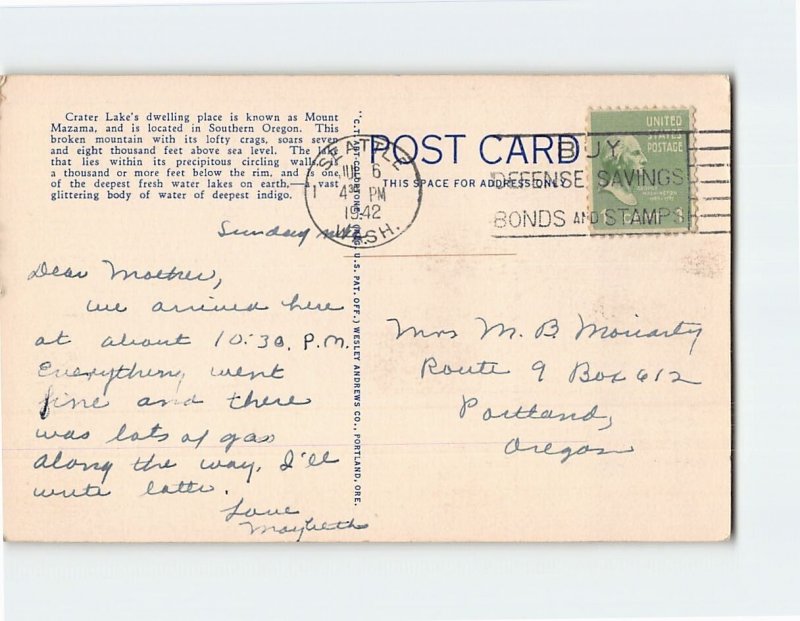 Crater Lake's dwelling place is known as Mount
Mazama, and is located in Southern Oregon. This
broken mountain with its lofty crags, soars seven
and eight thousand feet above sea level. The lake
that lies within its precipitous circling walls,
a thousand or more feet below the rim, and is one
of the deepest fresh water lakes on earth,—a vast
glittering body of water of deepest indigo.
POST CARD
THIS SPACE FOR ADDRESS ONLY
SEATTLE
6
4 30 PM
1942
WASH.
BUY
DEFENSE SAVINGS
BONDS AND STAMPS
UNITED
STATES
POSTAGE
WASHINGTON
U.S. PAT. OFF.) WESLEY ANDREWS CO., PORTLAND, ORE.
Sunday
Dear Mother,
We arrived here
at about 10:30, P.M.
Everything went
fine and there
was lots of gas
along the way. I'll
write later.
Love
Maybeth
Mrs M. B. Moriarty
Route 9 Box 612
Portland,
Oregon